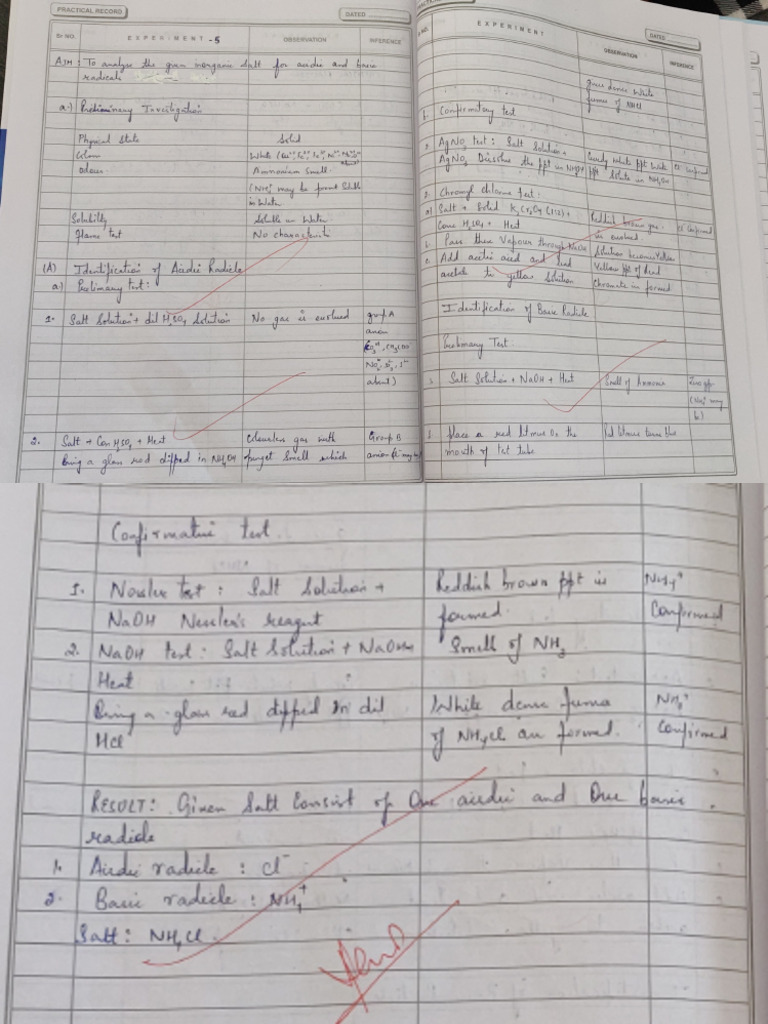 PRACTICAL RECORD
DATED
Sr NO. EXPERIMENT -5 OBSERVATION INFERENCE
AIM: To analyse the given inorganic salt for acidic and basic
radicals
a.) Preliminary Investigation
Physical State Solid
Colour White
Odour Ammonium Smell
(NH4+ may be present Soluble
in Water
Solubility Soluble in Water
Flame test No characteristic
(A) Identification of Acidic Radicle
a) Prelimary test:
1. Salt Solution + dil H2SO4 Solution No gas is evolved group A
anion
CO3, CH3COO
NO2, S, I
absent)
2. Salt + Con H2SO4 + Heat Colourless gas with Group B
Bring a glass rod dipped in NH4OH pungent Smell which anion Cl- may be
NO. EXPERIMENT OBSERVATION INFERENCE
DATED
gives dense White
fumes of NH4Cl
b. Confirmatory test
AgNO3 test: Salt Solution + Curdy white ppt White Cl confirmed
AgNO3 Dissolve the ppt in NH4OH ppt Soluble in NH4OH
2. Chromyl chloride test:
a) Salt + Solid K2Cr2O7 (1:2) + Reddish brown gas Cl Confirmed
Conc H2SO4 + Heat is evolved
b. Pass then Vapour through NaOH Solution becomes Yellow
c. Add acetic acid and lead Yellow ppt of Lead
acetate to yellow Solution Chromate is formed
Identification of Basic Radicle
Prelimary Test
Salt Solution + NaOH + Heat Smell of Ammonia
(NH4+ may
be)
Place a red litmus on the Red litmus turns blue
mouth of test tube
Confirmative test
1. Nessler test: Salt Solution + Reddish brown ppt is NH4+
NaOH Nessler's reagent formed. Confirmed
2. NaOH test: Salt Solution + NaOH Smell of NH3
Heat
Bring a glass rod dipped in dil White dense fumes NH4+
HCl of NH4Cl are formed. Confirmed
RESULT: Given Salt Consist of One acidic and One basic
radicle
1. Acidic radicle: Cl-
2. Basic radicle: NH4+
Salt: NH4Cl